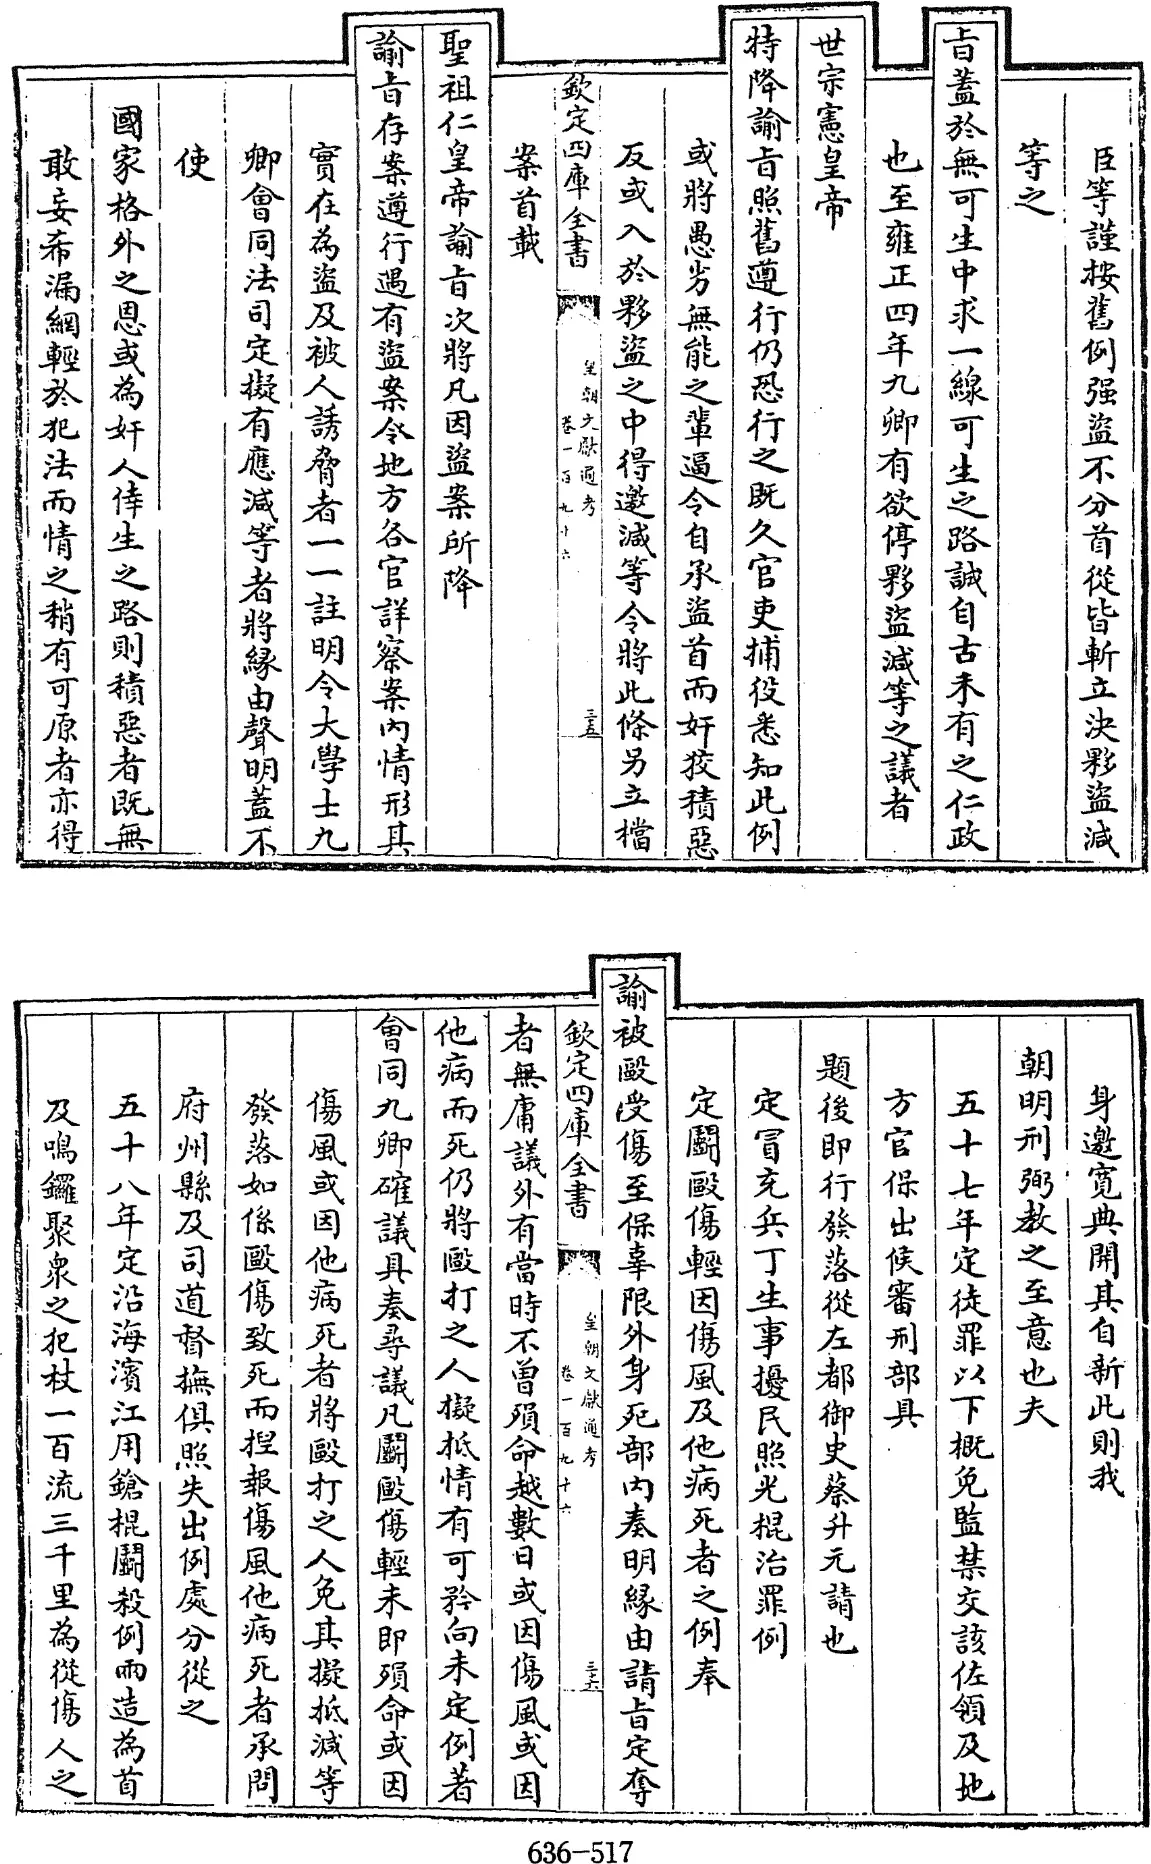 臣等謹按舊例强盜不分首從皆斬立決夥盜減
等之
旨蓋於無可生中求一線可生之路誠自古未有之仁政
也至雍正四年九卿有欲停夥盜減等之議者
世宗憲皇帝
特降諭旨照舊遵行仍恐行之既久官吏捕役悉知此例
或將愚劣無能之輩逼令自承盜首而奸狡積惡
反或入於夥盜之中得邀減等令將此條另立檔
欽定四庫全書
皇朝文獻通考
卷一百九十六
三五
案首載
聖祖仁皇帝諭旨次將凡因盜案所降
諭旨存案遵行遇有盜案令地方各官詳察案内情形其
實在為盜及被人誘脅者一一註明令大學士九
卿會同法司定擬有應減等者將緣由聲明蓋不
使
國家格外之恩或為奸人倖生之路則積惡者既無
敢妄希漏網輕於犯法而情之稍有可原者亦得
身邀寛典開其自新此則我
朝明刑弼教之至意也夫
五十七年定徒罪以下概免監禁交該佐領及地
方官保出候審刑部具
題後即行發落從左都御史蔡升元請也
定冒充兵丁生事擾民照光棍治罪例
定鬭毆傷輕因傷風及他病死者之例奉
諭被毆受傷至保辜限外身死部内奏明緣由請旨定奪
欽定四庫全書
皇朝文獻通考
卷一百九十六
三六
者無庸議外有當時不曾殞命越數日或因傷風或因
他病而死仍將毆打之人擬抵情有可矜向未定例著
會同九卿確議具奏尋議凡鬭毆傷輕未即殞命或因
傷風或因他病死者將毆打之人免其擬抵減等
發落如係毆傷致死而揑報傷風他病死者承問
府州縣及司道督撫俱照失出例處分從之
五十八年定沿海濱江用鎗棍鬭殺例兩造為首
及鳴鑼聚衆之犯杖一百流三千里為從傷人之
636-517